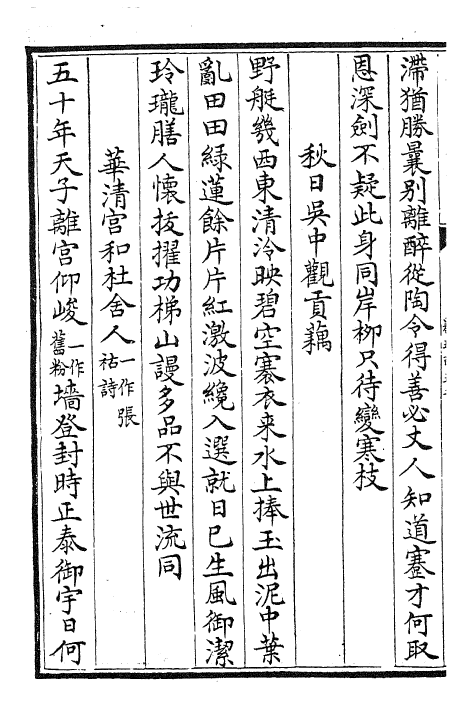 滯猶勝曩別離醉從陶令得善必丈人知道蹇才何取
恩深劍不疑此身同岸柳只待變寒枝
秋日吳中觀貢藕
野艇幾西東清泠映碧空褰衣来水上捧玉出泥中葉
亂田田綠蓮餘片片紅激波纔入選就日已生風御潔
玲瓏膳人懐拔擢功梯山謾多品不與世流同
華清宫和杜舍人一作張祜詩
五十年天子離宫仰峻一作舊粉墻登封時正泰御宇日何